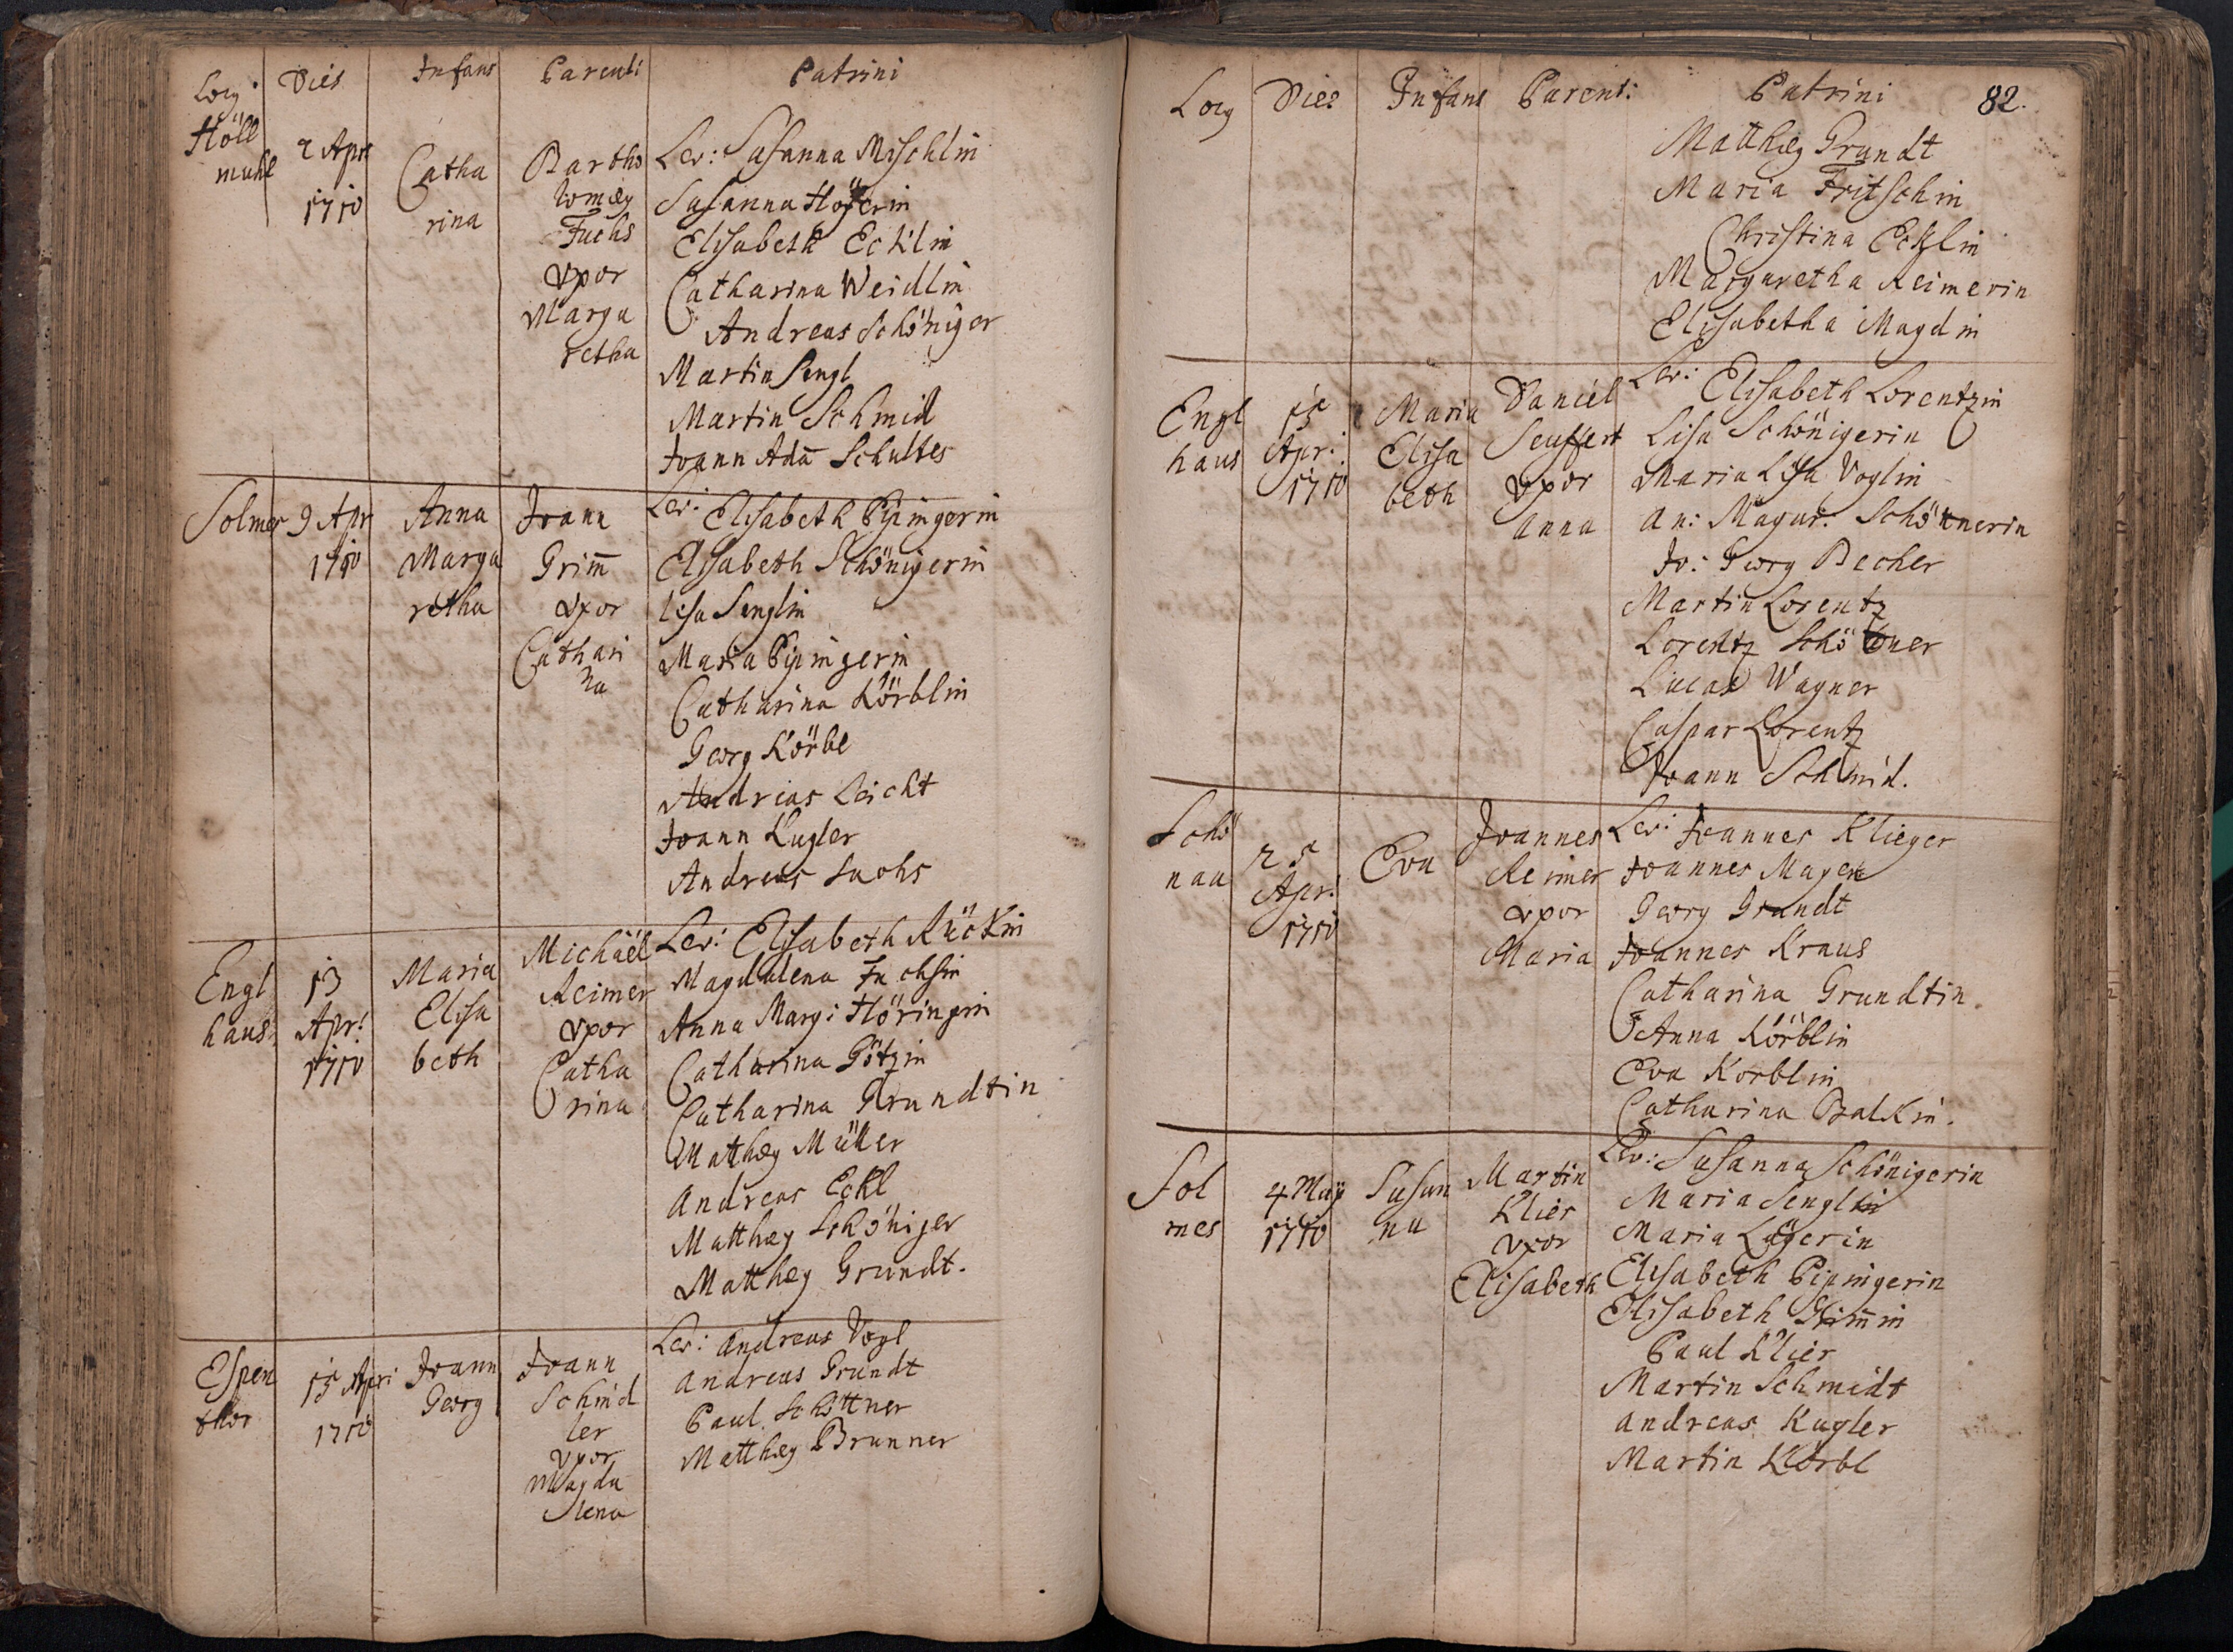 Locg Dies Infans Parenti Patrini
Höll
muhl
2 Apri
1710
Catha
rina
Bartho
lomæg
Fuchs
Vxor
Marga
retha
Lev: Susanna Mischlin
Susanna Höferin
Elisabeth Ecklin
Catharina Weidlin
Andreas Schöniger
Martin Sengl
Martin Schmid
Joann Adam̄ Schultes
Solmes
9 Apr
1710
Anna
Marga
retha
Joann
Grim̄
Vxor
Cathari
na
Lev: Elisabeth Pipingerin
Elisabeth Schönigerin
Lisa Senglin
Maria Pipingerin
Catharina Körblin
Georg Körbl
Andreas Leicht
Joann Kugler
Andreas Fuchs
Engl
haus
13
Apr:
1710
Maria
Elisa
beth
Michäel
Reimer
Vxor
Catha
rina
Lev: Elisabeth Rückin
Magdalena Fuchsin
Anna Marg: Höringin
Catharina Götzin
Catharina Grundtin
Matthæg Müller
Andreas Eckl
Matthæg Schöniger
Matthæg Grundt.
Espen
thor
15 Apri
1710
Joann
Georg
Joann
Schmid
ler
Vxor
Magda
lena
Lev: Andreas Vogl
Andreas Grundt
Paul Schöttner
Matthæg Brunner
Locg Dies Infans Parent: Patrini 82.
Matthæg Grundt
Maria Fritschin
Christina Ecklin
Margaretha Reimerin
Elisabetha Magdin
Engl
haus
15
Apr:
1710
Maria
Elisa
beth
Daniel
Seuffert
Vxor
Anna
Lev: Elisabeth Lorentzin
Lisa Schönigerin
Maria Lisa Voglin
An: Magar: Schöttnerin
Jo: Georg Becher
Martin Lorentz
Lorentz Schöttner
Lucas Wagner
Caspar Lorentz
Joann Schmid.
Schö
nau
25
Apr:
1710
Eva
Joannes
Reimer
Vxor
Maria
Lev: Joannes Klieger
Joannes Mayer
Georg Grundt
Joannes Kraus
Catharina Grundtin.
Anna Körblin
Eva Korblin
Catharina Balkin.
Sol
mes
4 May
1710
Susan
na
Martin
Klier
Vxor
Elisabeth
Lev: Susanna Schönigerin
Maria Senglin
Maria Lägerin
Elisabeth Pipingerin
Elisabeth Grim̄in
Paul Klier
Martin Schmidt
Andreas Kugler
Martin Körbl